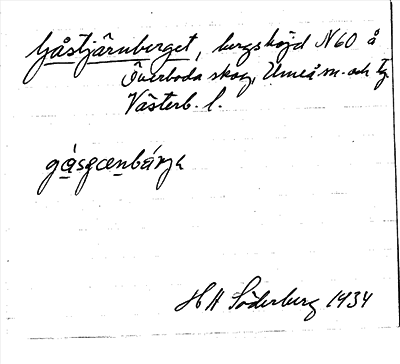 Gåstjärnberget, bergshöjd N60 å
Överboda skog, Umeå sn. och tg
Västerb. l.
gásɕenbárja
H H Söderberg 1934